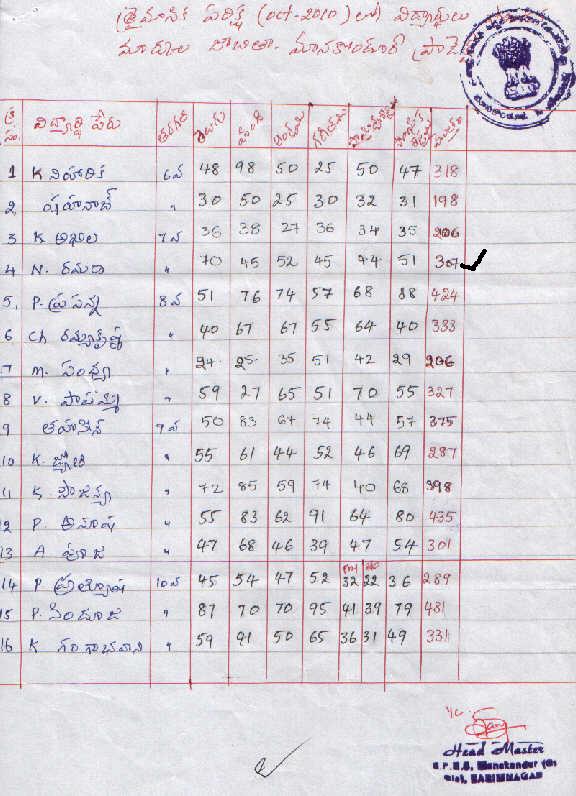 త్రైమాసిక పరీక్ష (oct-2010) లో విద్యార్థుల
మార్కుల జాబితా. మానకొండూర్
క్ర సం. విద్యార్థి పేరు తరగతి తెలుగు హిందీ ఇంగ్లీషు గణితము
1 K నిహారిక 6వ 48 98 50 25 50 47 318
2 షహనాజ్ " 30 50 25 30 32 31 198
3 K అఖిల 7వ 36 38 27 36 34 35 206
4 N. రమాదే " 70 45 52 45 44 51 307
5. P. ప్రసన్న 8వ 51 76 74 57 68 88 424
6 Ch " 40 67 67 55 64 40 333
7 M. సంధ్య " 24 25 35 51 42 29 206
8 V. పావని " 59 27 65 51 70 55 327
9 తహసీన్ 9వ 50 83 67 74 44 57 375
10 K. జ్యోతి " 55 61 44 52 46 69 287
11 K. సౌజన్య " 72 85 59 74 40 68 398
12 P. అనూష " 55 83 62 91 64 80 435
13 A పూజ " 47 68 46 39 47 54 301
14 P ప్రత్యూష 10వ 45 54 47 52 32 22 36 289
15 P. సింధూజ " 87 70 70 95 41 39 79 481
16 K గంగాభవాని " 59 91 50 65 36 31 49 331
Head Master
Manakondur
KARIMNAGAR